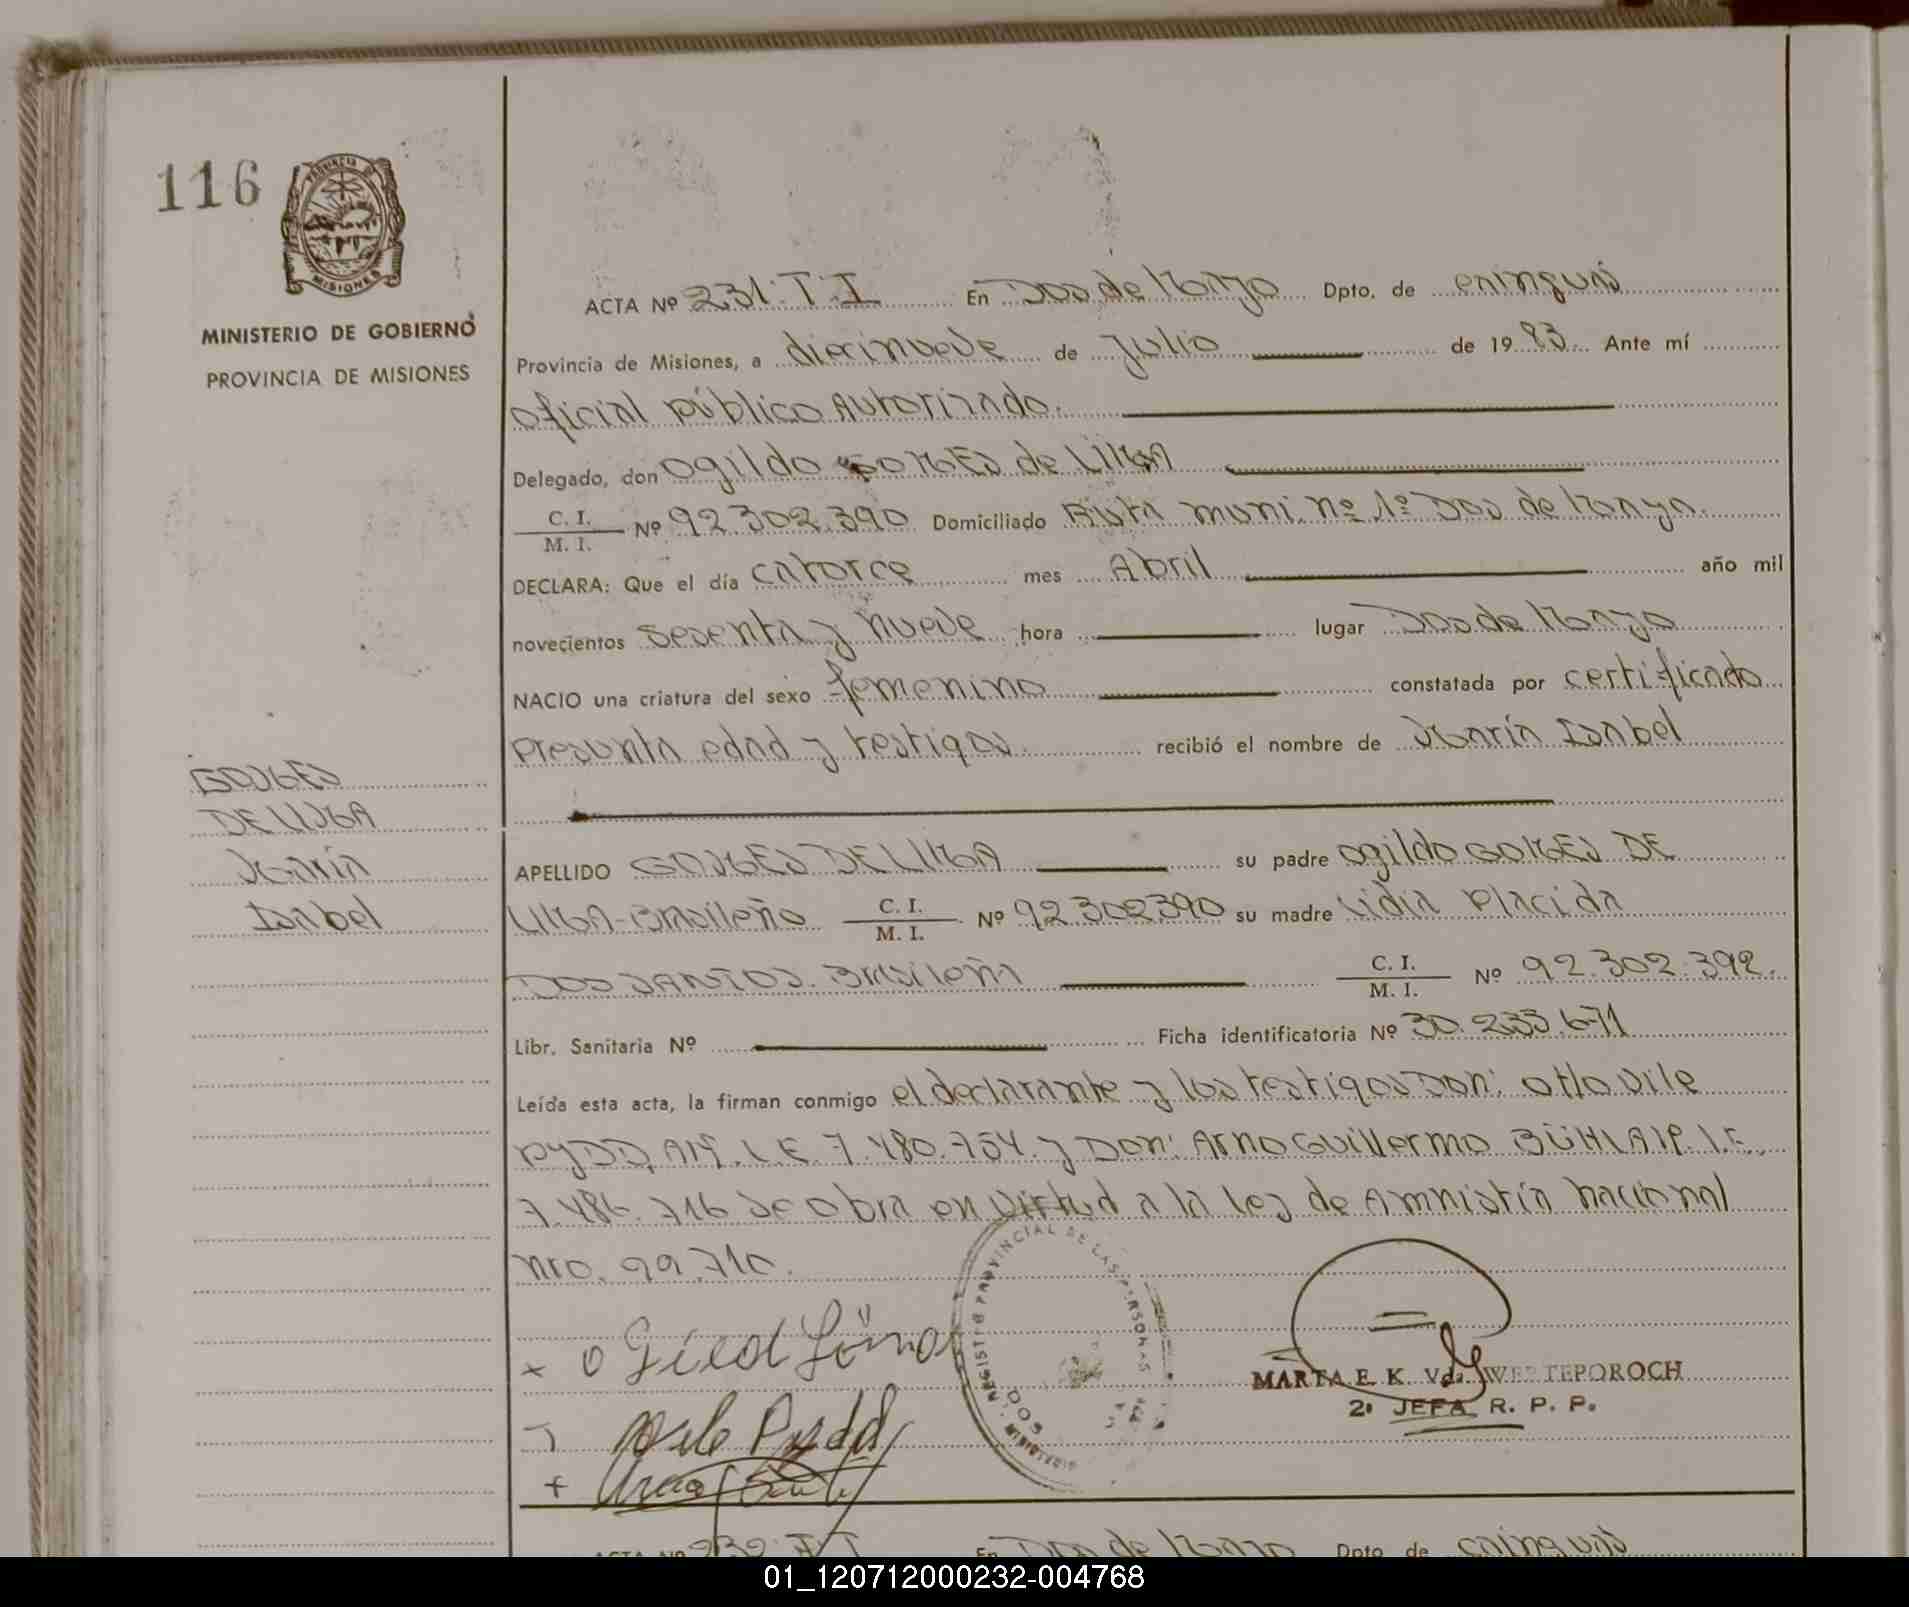 116
PROVINCIA DE
MISIONES
MINISTERIO DE GOBIERNO
PROVINCIA DE MISIONES
ACTA Nº 231. T. I En Dos de Mayo Dpto. de cainguás
Provincia de Misiones, a diecinueve de Julio de 1983. Ante mí
oficial público Autorizado.
Delegado, don Ogildo GOMES de LIMA
C. I.
M. I. Nº 92.302.390 Domiciliado Ruta muni. nº 1º Dos de Mayo.
DECLARA: Que el día catorce mes Abril año mil
novecientos sesenta y nueve hora lugar Dos de Mayo
NACIO una criatura del sexo femenino constatada por certificado
presunta edad y testigos. recibió el nombre de María Isabel
GOMES
DE LIMA
María
Isabel
APELLIDO GOMES DE LIMA su padre Ogildo GOMES DE
LIMA-Brasileño C. I.
M. I. Nº 92.302390 su madre Lidia Placida
DOS SANTOS. Brasileña C. I.
M. I. Nº 92.302.392.
Libr. Sanitaria Nº Ficha identificatoria Nº 30.233.671
Leída esta acta, la firman conmigo el declarante y los testigos Don: Otto
PYDD, M. L.E. 7.480.754. y Don: Arno Guillermo M. I.E.
7.486.716 Se obra en virtud a la Ley de Amnistía nacional
nro. 99.710.
REGISTRO PROVINCIAL DE LAS PERSONAS
MARTA E. K. Vda. WERTEPOROCH
2ª JEFA R. P. P.
ACTA Nº 232. T. I En Dos de Mayo Dpto. de cainguás
01_120712000232-004768